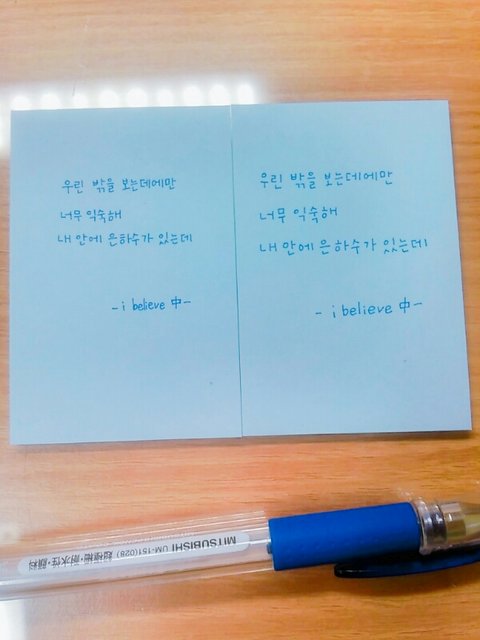 우린 밖을 보는데에만
너무 익숙해
내 안에 은하수가 있는데
- i believe 中 -
우린 밖을 보는데에만
너무 익숙해
내 안에 은하수가 있는데
- i believe 中 -
MITSUBISHI UM-151(028) 超極細・耐水性・顔料